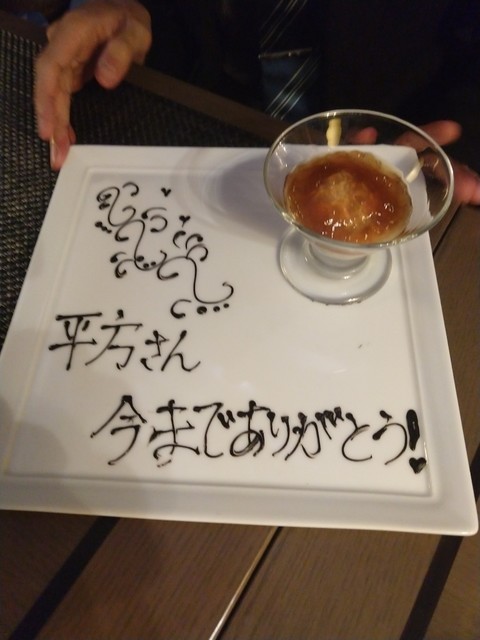 平方さん
今までありがとう!